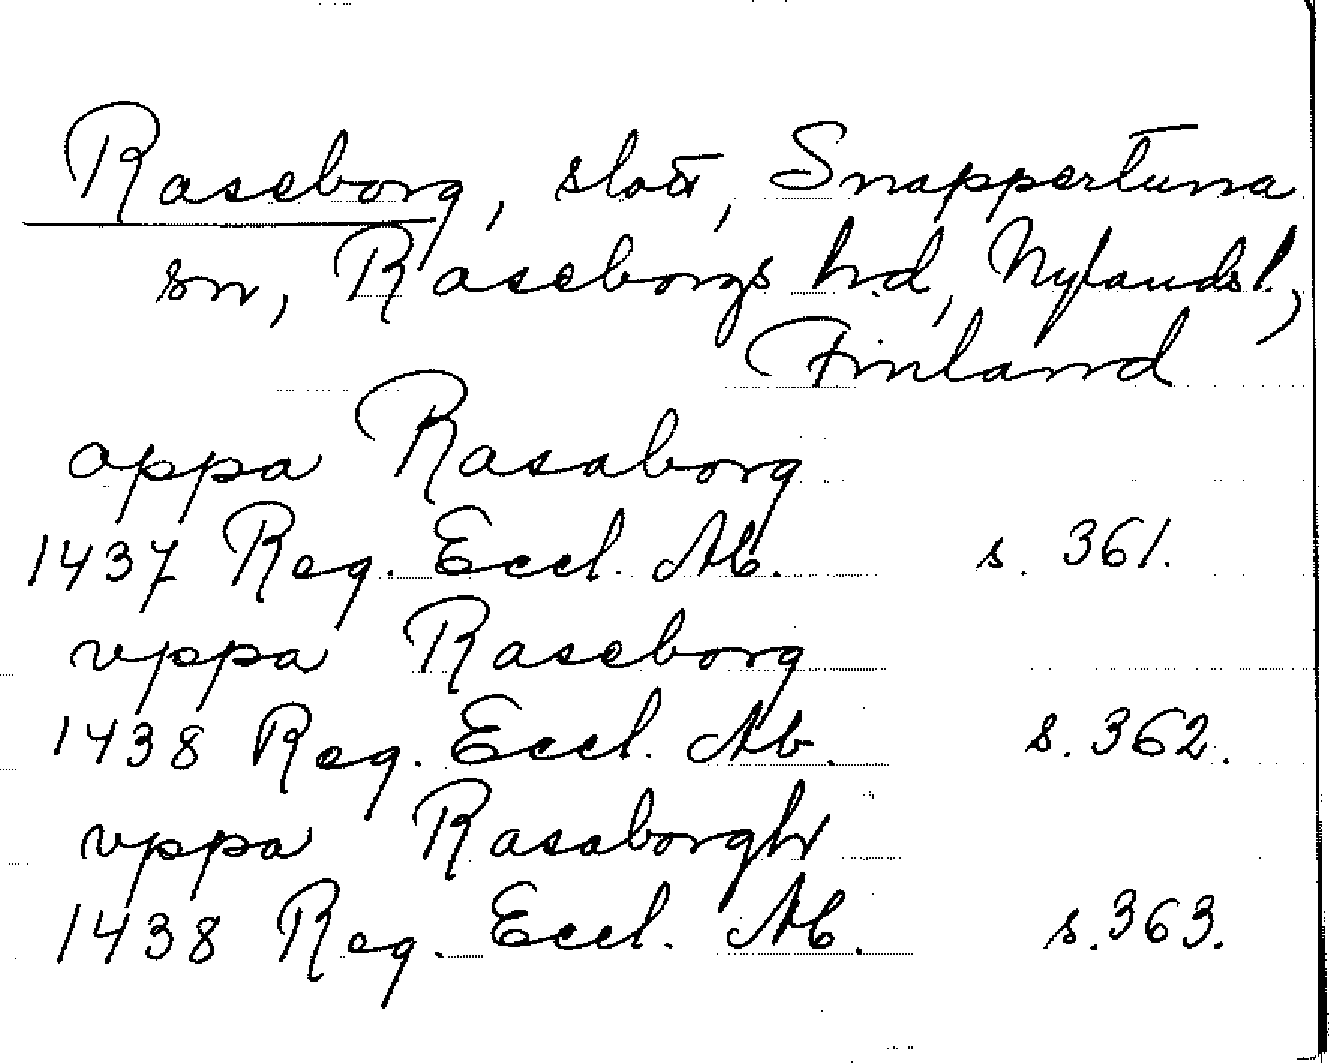 Raseborg, slott, Snappertuna
sn, Raseborgs hd, Nylands l.,
Finland
oppa Rasaborg
1437 Reg. Eccl. Ab. s. 361.
vppa Raseborg
1438 Reg. Eccl. Ab. s. 362.
vppa Rasaborgh
1438 Reg. Eccl. Ab. s. 363.